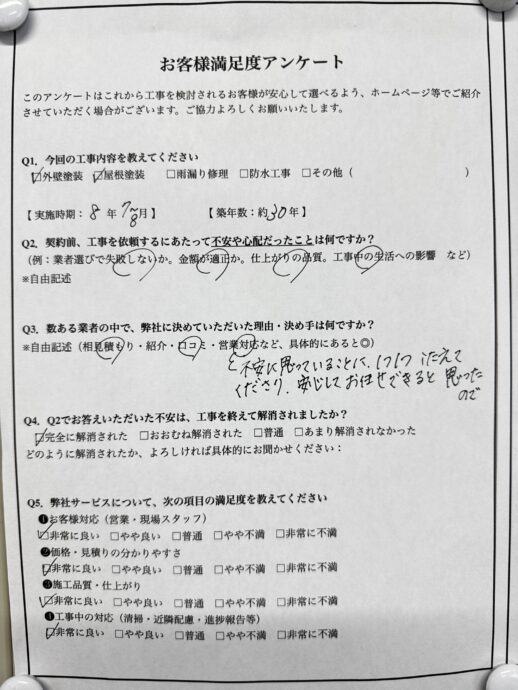 お客様満足度アンケート
このアンケートはこれから工事を検討されるお客様が安心して選べるよう、ホームページ等でご紹介
させていただく場合がございます。ご協力よろしくお願いいたします。
Q1. 今回の工事内容を教えてください
☑外壁塗装 ☑屋根塗装 □雨漏り修理 □防水工事 □その他（ ）
【実施時期：8年 7〜8月】 【築年数：約30年】
Q2. 契約前、工事を依頼するにあたって不安や心配だったことは何ですか？
（例：業者選びで失敗しないか。金額が適正か。仕上がりの品質。工事中の生活への影響 など）
※自由記述
Q3. 数ある業者の中で、弊社に決めていただいた理由・決め手は何ですか？
※自由記述（相見積もり・紹介・口コミ・営業対応など、具体的にあると◎）
不安に思っていることに、1つ1つ こたえて
くださり、安心して お任せできると 思った
ので
Q4. Q2でお答えいただいた不安は、工事を終えて解消されましたか？
☑完全に解消された □おおむね解消された □普通 □あまり解消されなかった
どのように解消されたか、よろしければ具体的にお聞かせください：
Q5. 弊社サービスについて、次の項目の満足度を教えてください
❶お客様対応（営業・現場スタッフ）
☑非常に良い □やや良い □普通 □やや不満 □非常に不満
❷価格・見積りの分かりやすさ
☑非常に良い □やや良い □普通 □やや不満 □非常に不満
❸施工品質・仕上がり
☑非常に良い □やや良い □普通 □やや不満 □非常に不満
❹工事中の対応（清掃・近隣配慮・進捗報告等）
☑非常に良い □やや良い □普通 □やや不満 □非常に不満